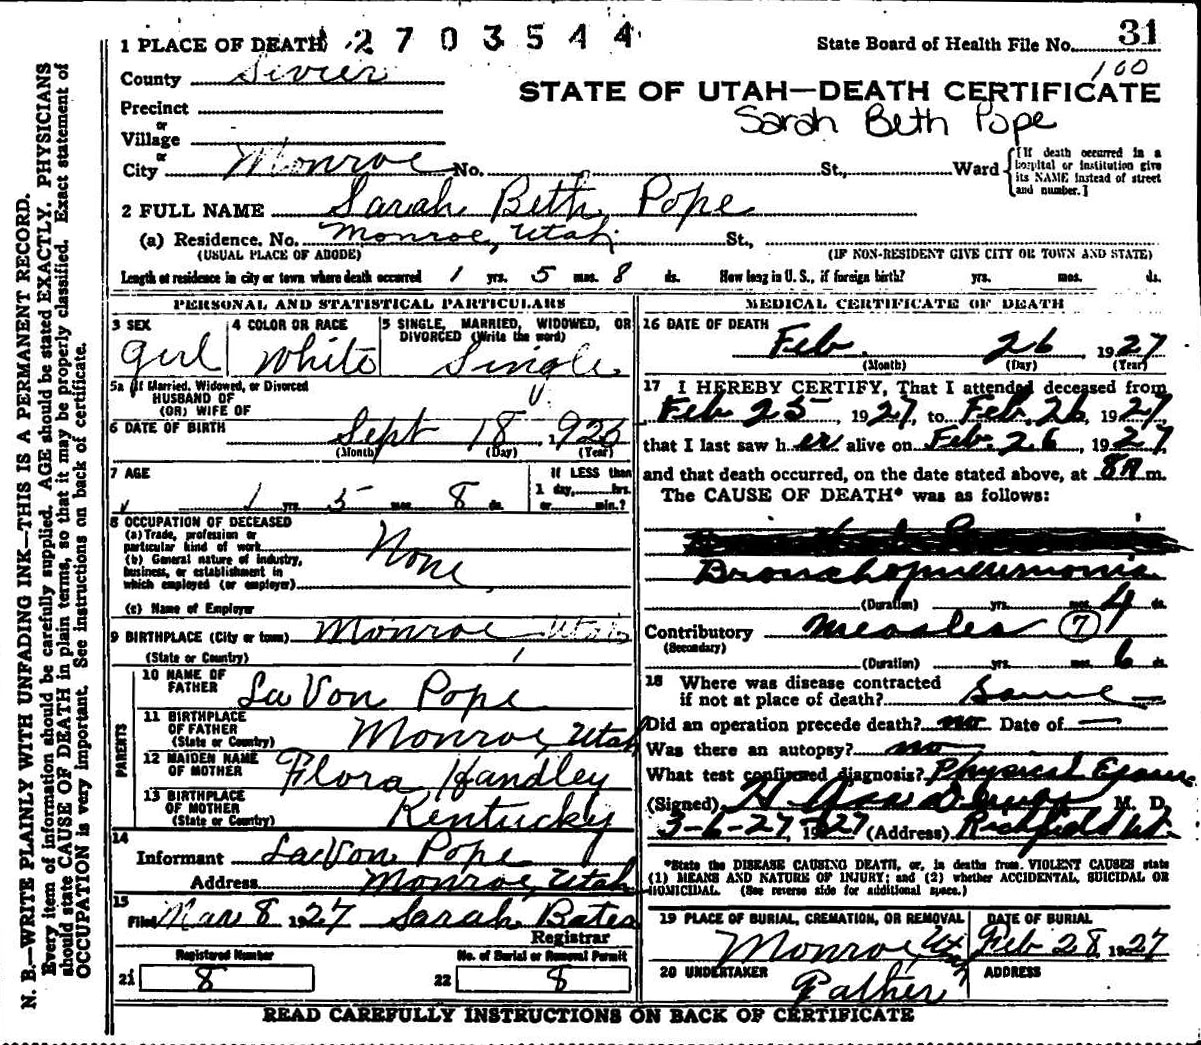 1 PLACE OF DEATH 2703544
State Board of Health File No. 31
County Sivier
100
STATE OF UTAH—DEATH CERTIFICATE
Precinct
or
Sarah Beth Pope
Village
or
City Monroe No. St., Ward [If death occurred in a hospital or institution give its NAME instead of street and number.]
2 FULL NAME Sarah Beth Pope
(a) Residence. No. Monroe, Utah St.,
(USUAL PLACE OF ABODE) (IF NON-RESIDENT GIVE CITY OR TOWN AND STATE)
Length of residence in city or town where death occurred 1 yrs. 5 mos. 8 ds. How long in U. S., if foreign birth? yrs. mos. ds.
PERSONAL AND STATISTICAL PARTICULARS
3 SEX girl
4 COLOR OR RACE White
5 SINGLE, MARRIED, WIDOWED, OR DIVORCED (Write the word) Single
5a If Married, Widowed, or Divorced
HUSBAND OF
(OR) WIFE OF
6 DATE OF BIRTH Sept 18, 1925
(Month) (Day) (Year)
7 AGE
1 yrs. 5 mos. 8 ds.
If LESS than
1 day, hrs.
or min.?
8 OCCUPATION OF DECEASED
(a) Trade, profession or
particular kind of work None
(b) General nature of industry,
business, or establishment in
which employed (or employer)
(c) Name of Employer
9 BIRTHPLACE (City or town) Monroe Utah
(State or Country)
PARENTS
10 NAME OF FATHER LaVon Pope
11 BIRTHPLACE OF FATHER (State or Country) Monroe, Utah
12 MAIDEN NAME OF MOTHER Flora Handley
13 BIRTHPLACE OF MOTHER (State or Country) Kentucky
14
Informant LaVon Pope
Address Monroe, Utah
15
Filed Mar 8 1927 Sarah Bates
Registrar
Registered Number
No. of Burial or Removal Permit
21 8 22 8
MEDICAL CERTIFICATE OF DEATH
16 DATE OF DEATH
Feb. 26, 1927
(Month) (Day) (Year)
17 I HEREBY CERTIFY, That I attended deceased from
Feb 25 1927, to Feb. 26, 1927
that I last saw her alive on Feb. 26, 1927,
and that death occurred, on the date stated above, at 8A m.
The CAUSE OF DEATH* was as follows:
Bronchopneumonia
(Duration) yrs. mos. 4 ds.
Contributory Measles 7
(Secondary)
(Duration) yrs. mos. 6 ds.
18 Where was disease contracted
if not at place of death? Same
Did an operation precede death? no Date of —
Was there an autopsy? no
What test confirmed diagnosis? Physical Exam
(Signed) M. D.
3-6-27, 1927 (Address) Richfield Ut.
*State the DISEASE CAUSING DEATH, or, in deaths from VIOLENT CAUSES state
(1) MEANS AND NATURE OF INJURY; and (2) whether ACCIDENTAL, SUICIDAL OR
HOMICIDAL. (See reverse side for additional space.)
19 PLACE OF BURIAL, CREMATION, OR REMOVAL
Monroe, Utah
DATE OF BURIAL
Feb 28, 1927
20 UNDERTAKER
Father
ADDRESS
READ CAREFULLY INSTRUCTIONS ON BACK OF CERTIFICATE
N. B.—WRITE PLAINLY WITH UNFADING INK—THIS IS A PERMANENT RECORD.
Every item of information should be carefully supplied. AGE should be stated EXACTLY. PHYSICIANS
should state CAUSE OF DEATH in plain terms, so that it may be properly classified. Exact statement of
OCCUPATION is very important. See instructions on back of certificate.